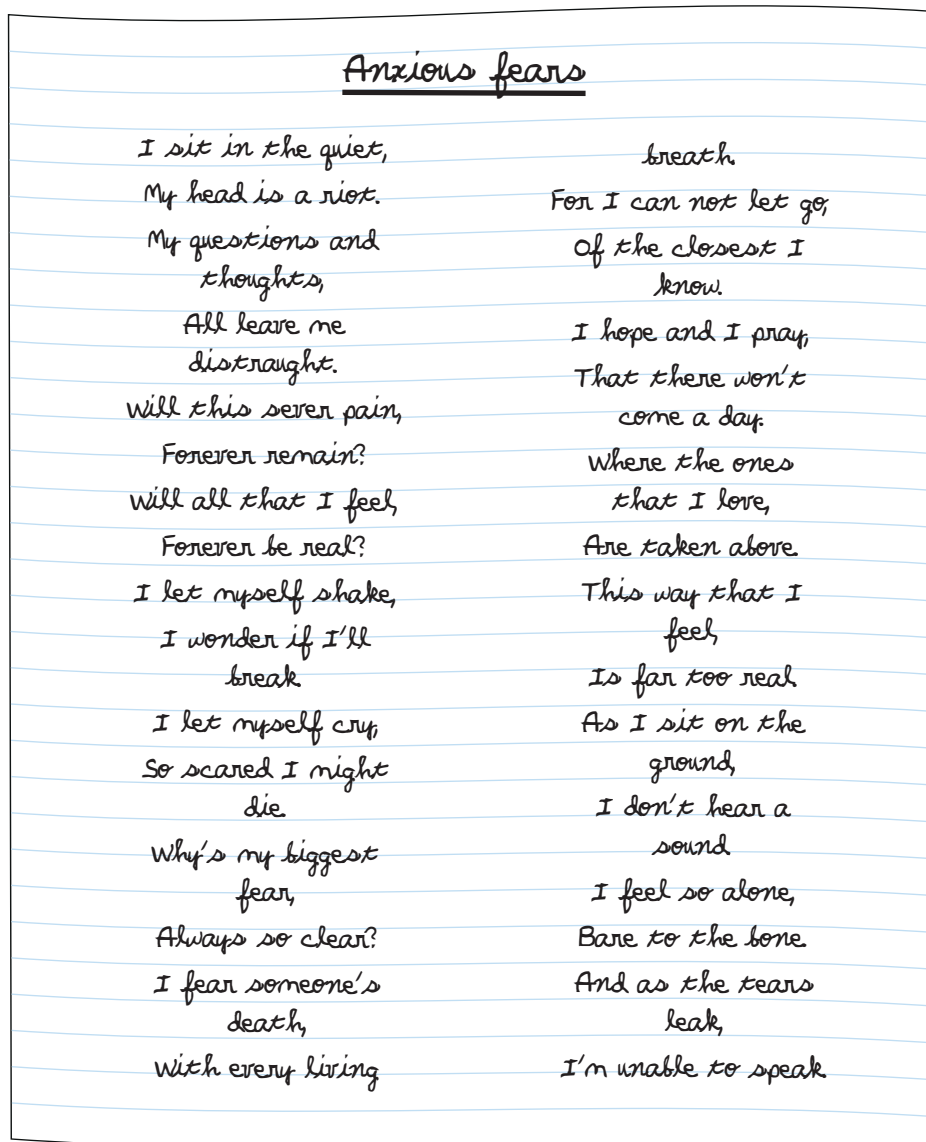 Anxious fears
I sit in the quiet,
My head is a riot.
My questions and
thoughts,
All leave me
distraught.
Will this sever pain,
Forever remain?
Will all that I feel,
Forever be real?
I let myself shake,
I wonder if I'll
break.
I let myself cry,
So scared I might
die.
Why's my biggest
fear,
Always so clear?
I fear someone's
death,
With every living
breath.
For I can not let go,
Of the closest I
know.
I hope and I pray,
That there won't
come a day.
Where the ones
that I love,
Are taken above.
This way that I
feel,
Is far too real.
As I sit on the
ground,
I don't hear a
sound.
I feel so alone,
Bare to the bone.
And as the tears
leak,
I'm unable to speak.